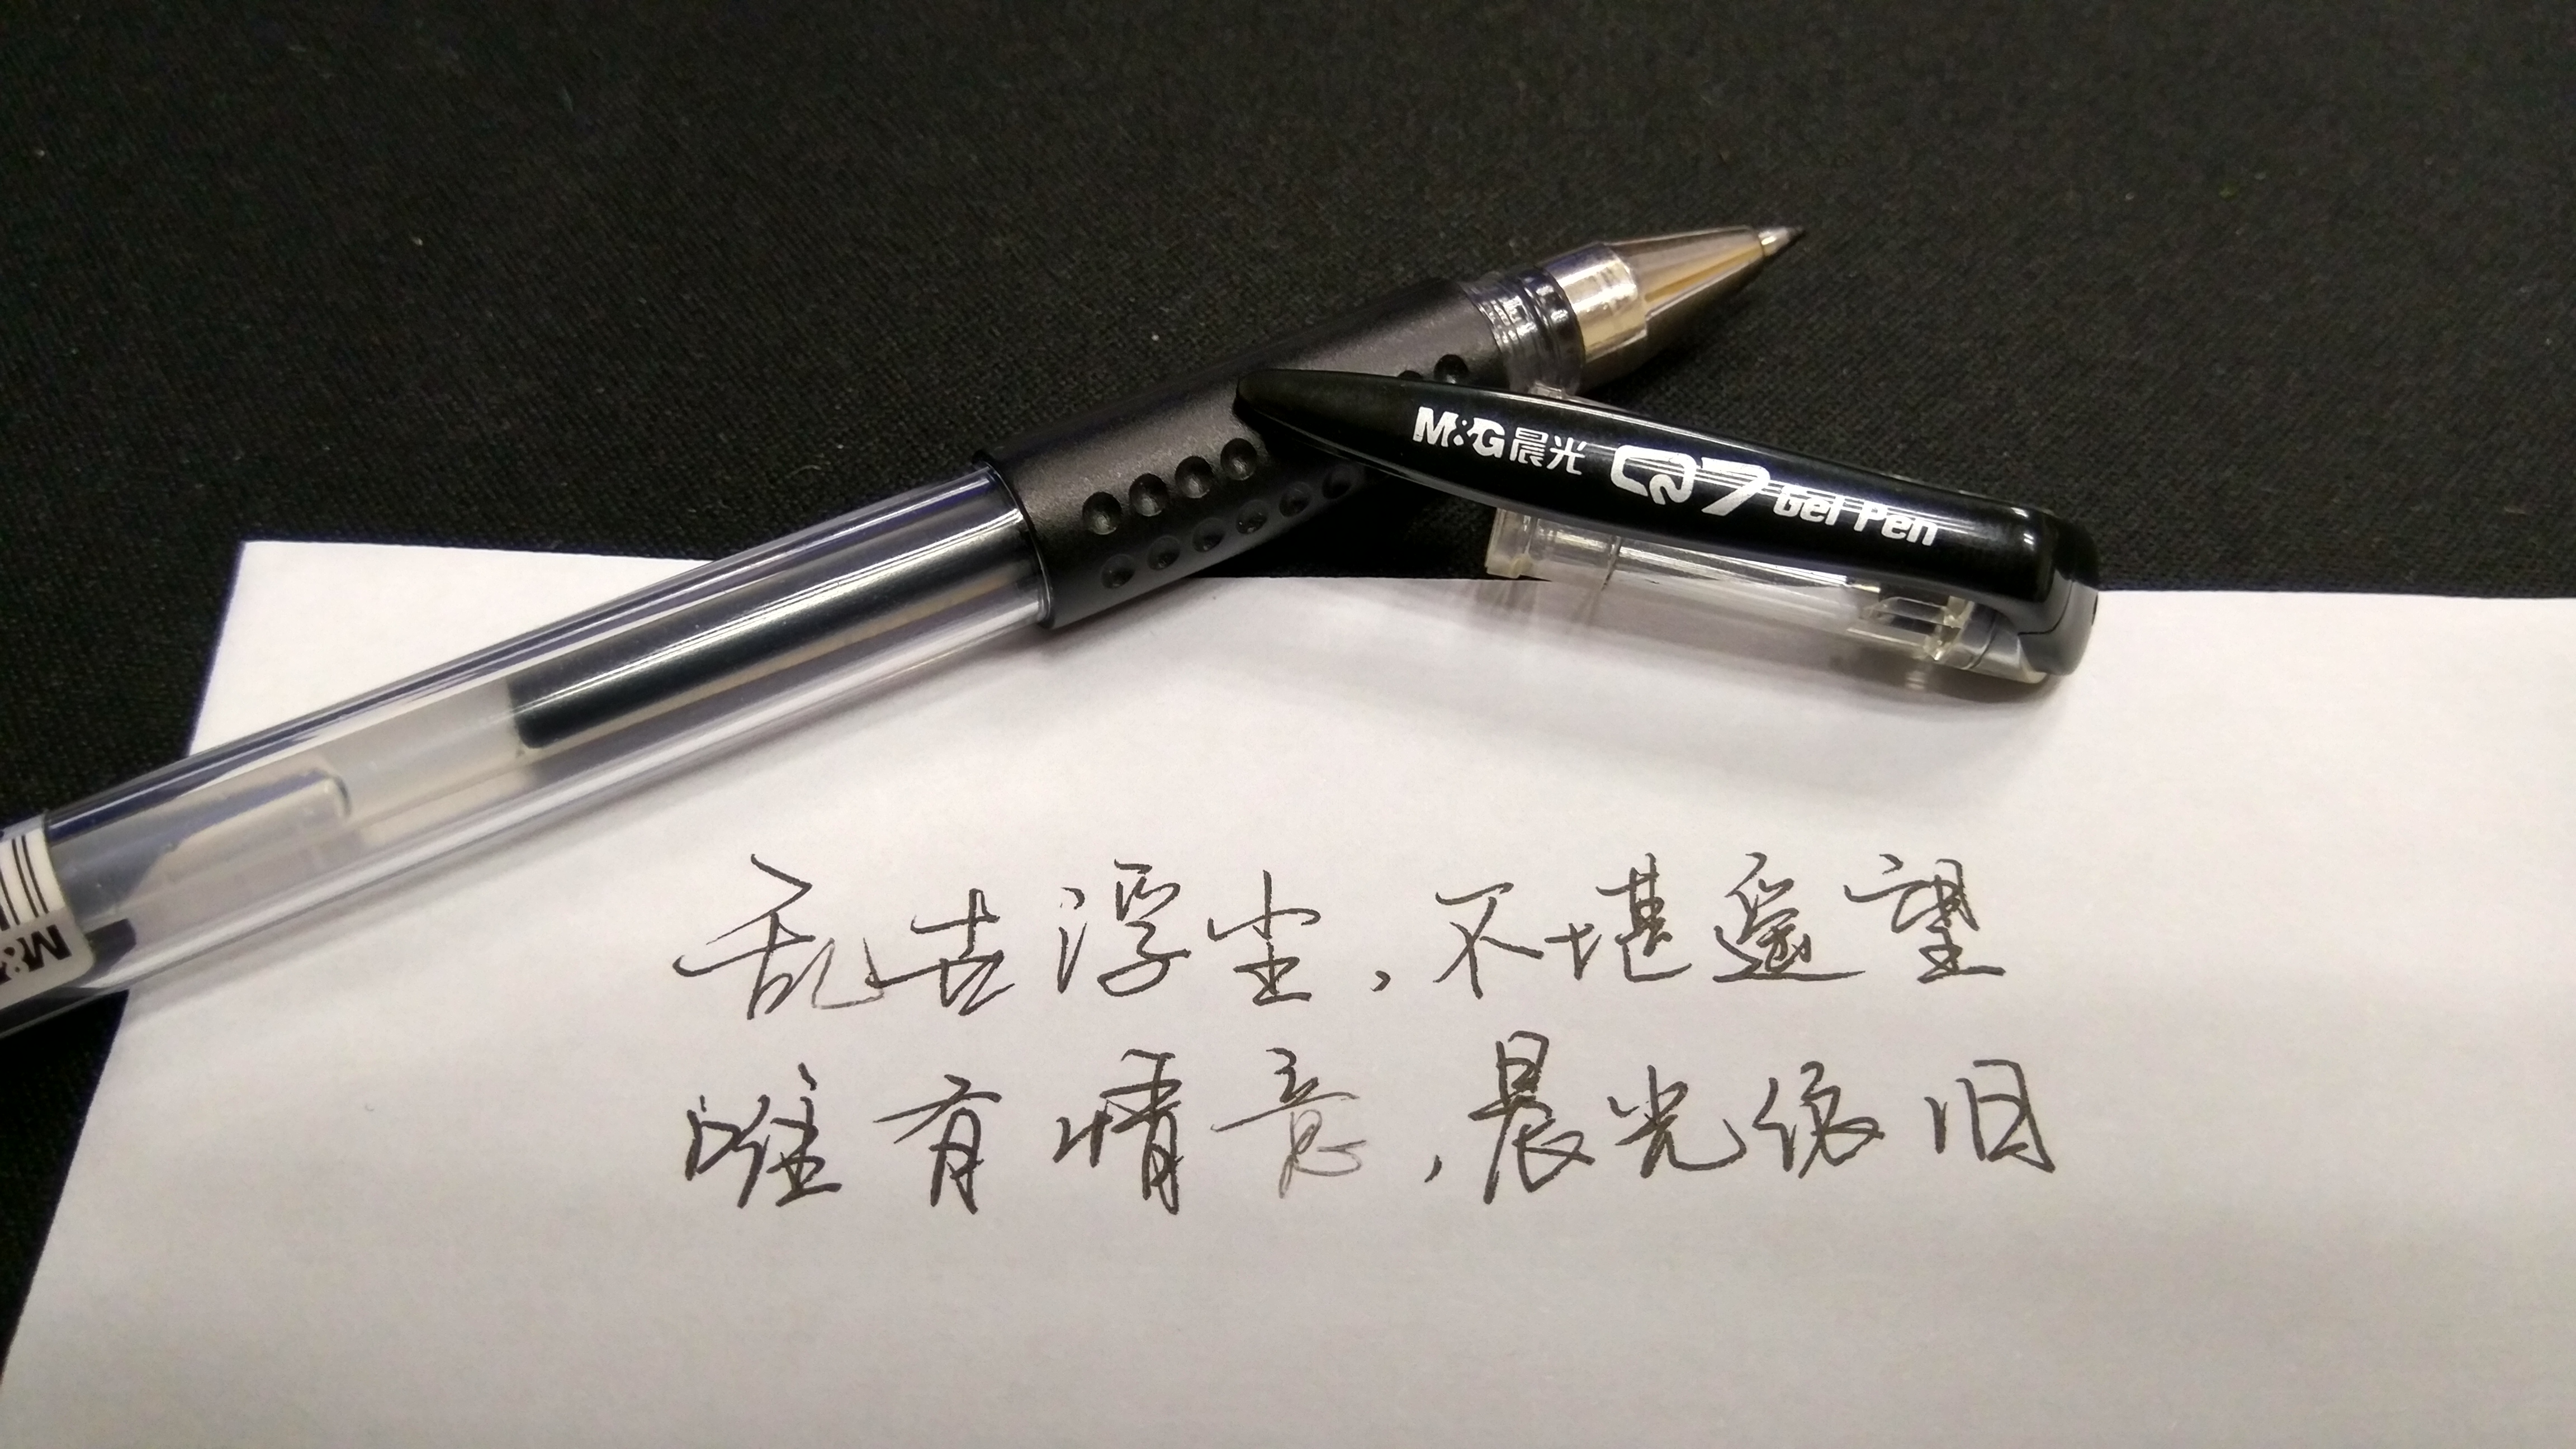 M&G晨光 Q7 Gel Pen
M&G
乱去浮尘，不堪遥望
唯有情意，晨光依旧